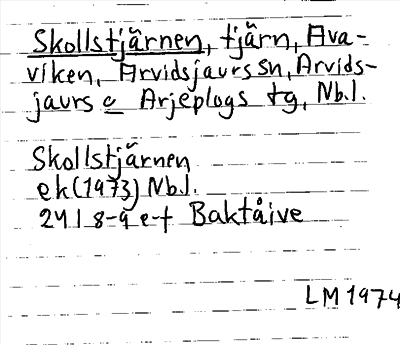 Skollstjärnen, tjärn, Ava-
viken, Arvidsjaurs sn, Arvids-
jaurs o Arjeplogs tg, Nb.l.
Skollstjärnen
ek (1973) Nb.l.
24 I 8-9 e-f Baktåive
LM 1974